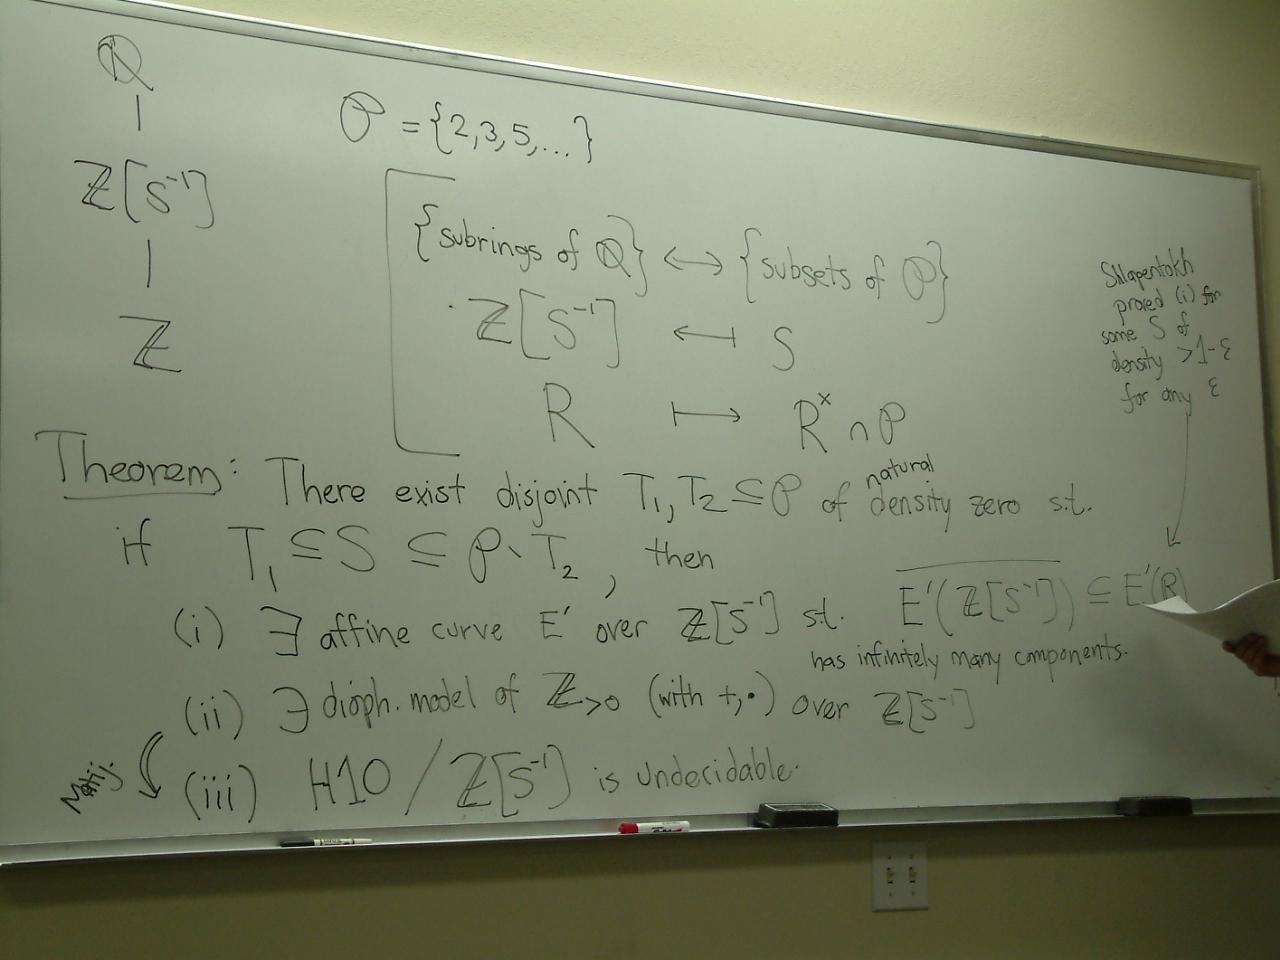 ℚ
|
ℤ[S⁻¹]
|
ℤ
𝒫 = {2,3,5,...}
{subrings of ℚ} ↔ {subsets of 𝒫}
ℤ[S⁻¹] ↤ S
R ↦ Rˣ ∩ 𝒫
Shlapentokh
proved (i) for
some S of
density >1-ε
for any ε
Theorem: There exist disjoint T₁, T₂ ⊆ 𝒫 of natural density zero s.t.
if T₁ ⊆ S ⊆ 𝒫 \ T₂, then
(i) ∃ affine curve E' over ℤ[S⁻¹] s.t. \overline{E'(ℤ[S⁻¹])} ⊆ E'(ℝ)
has infinitely many components.
(ii) ∃ dioph. model of ℤ>0 (with +,·) over ℤ[S⁻¹]
Matij.
(iii) H10 / ℤ[S⁻¹] is undecidable.